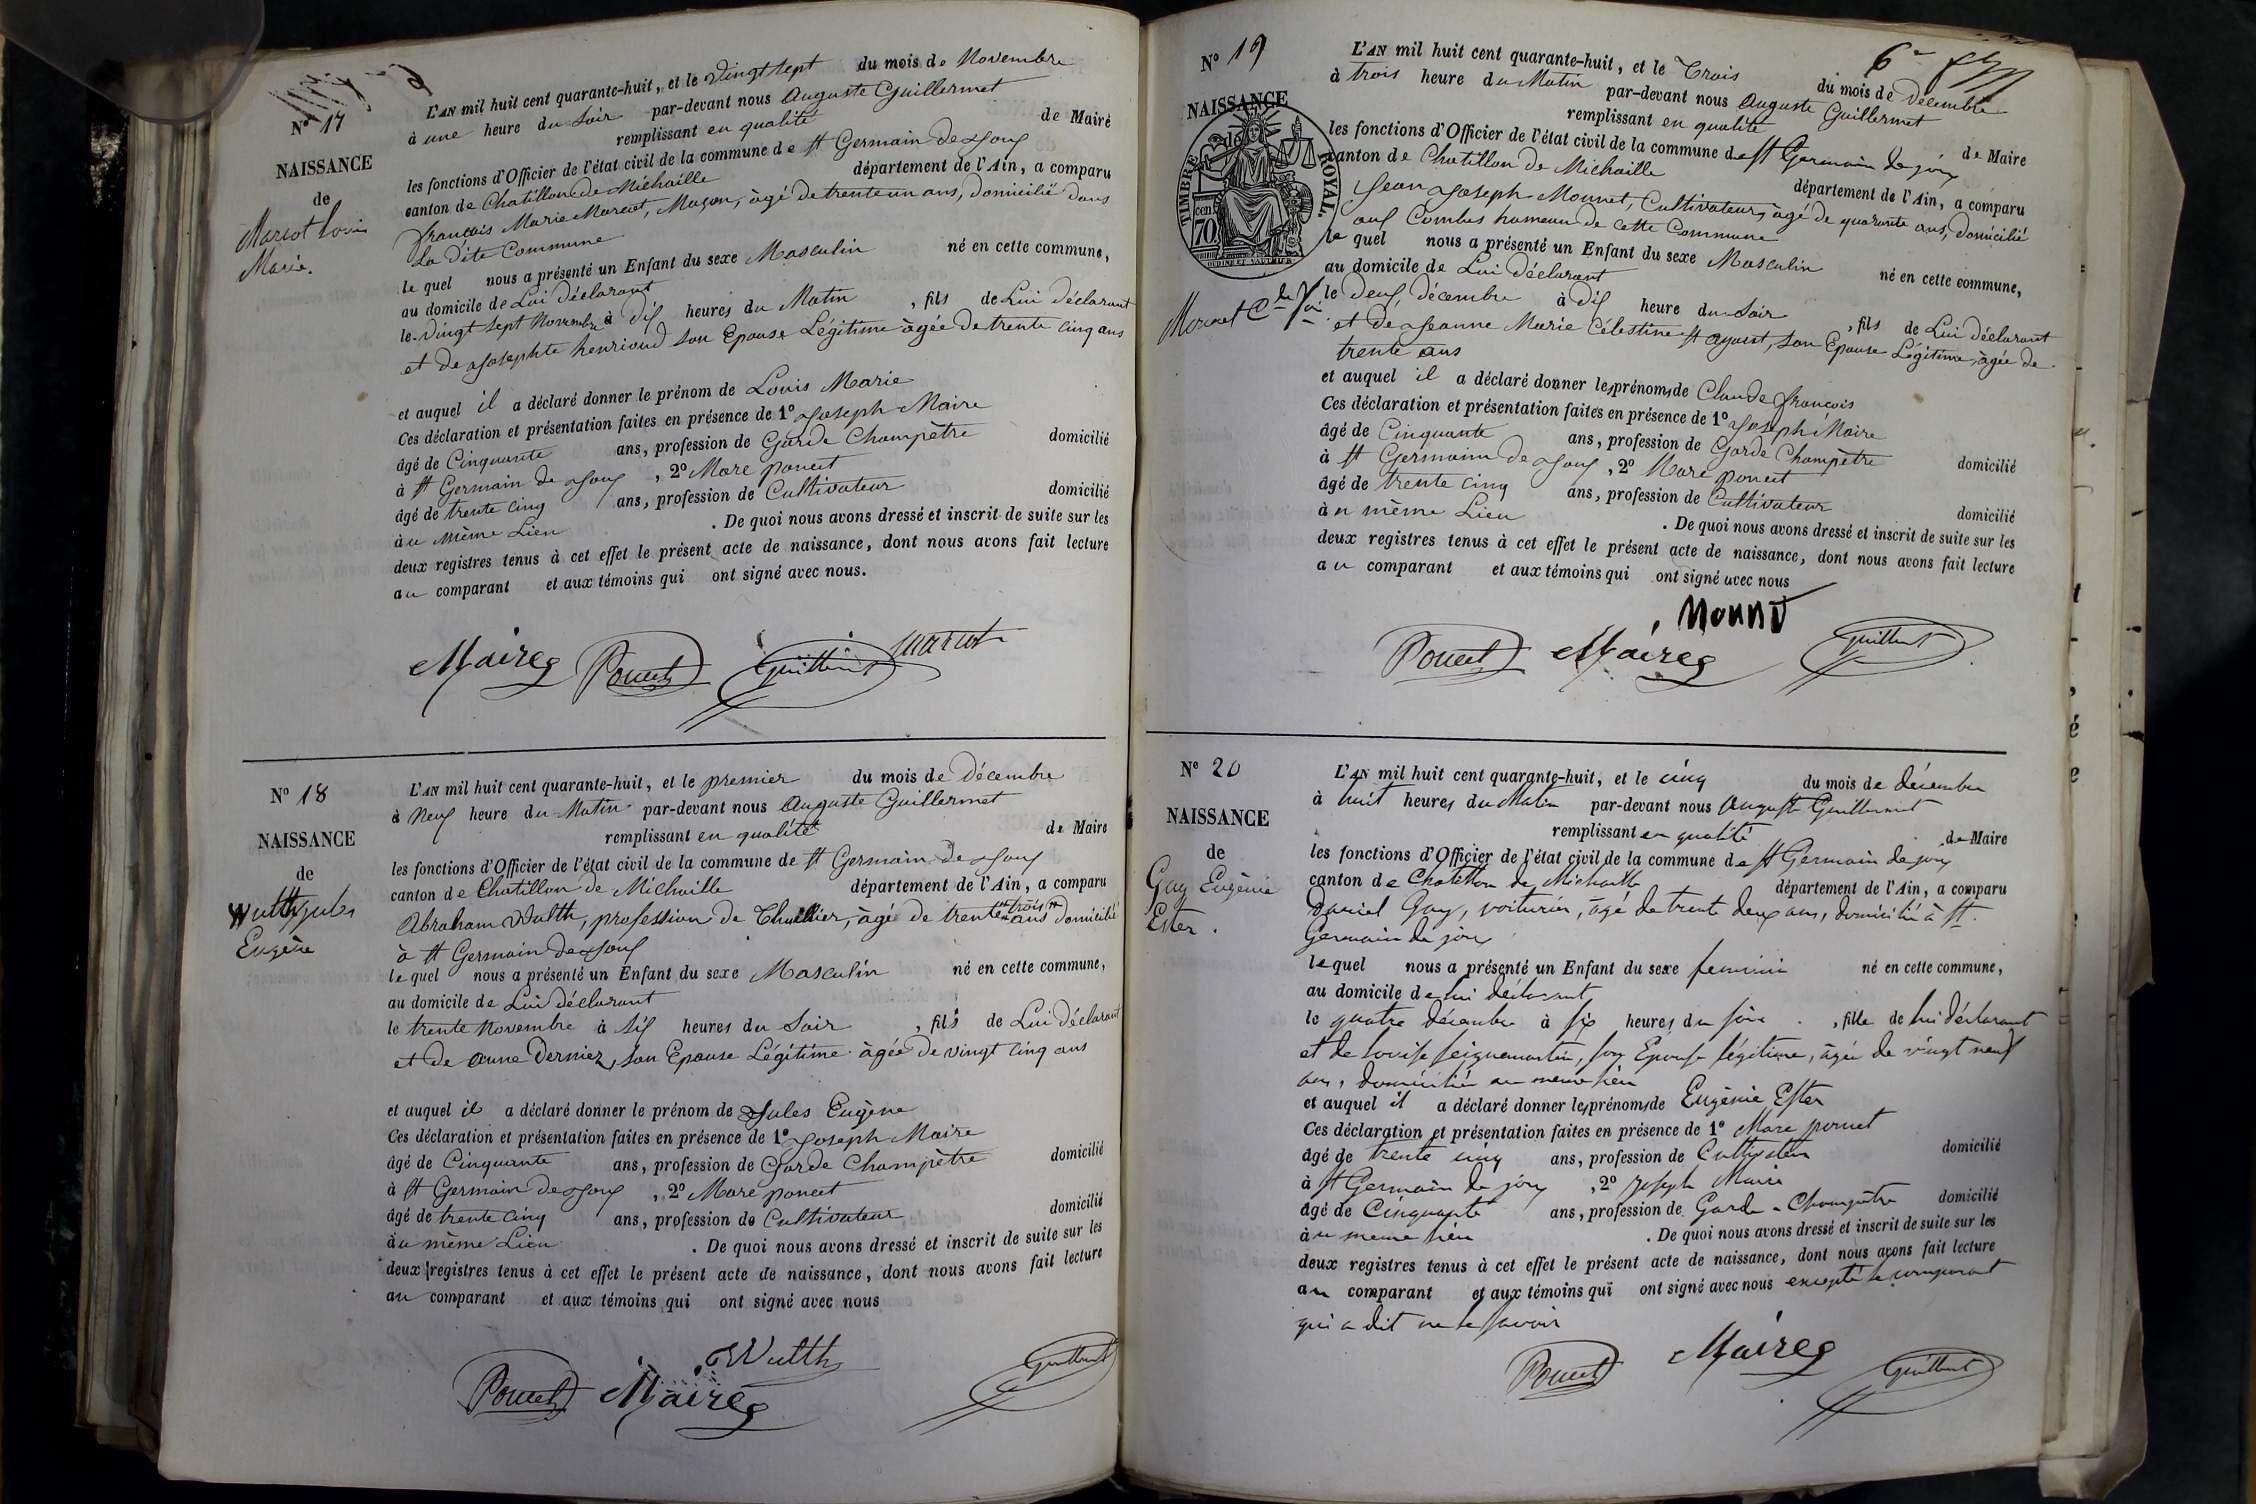 N° 17
NAISSANCE
de
Marcot Louis
Marie.
L'AN mil huit cent quarante-huit, et le vingt sept du mois de Novembre
à une heure du Soir par-devant nous Auguste Guillermet
remplissant en qualité de Maire
les fonctions d'Officier de l'état civil de la commune de St Germain de Joux
canton de Chatillon de Michaille département de l'Ain, a comparu
françois Marie Marcot, Maçon, âgé de trente un ans, domicilié dans
La dite Commune
le quel nous a présenté un Enfant du sexe Masculin né en cette commune,
au domicile de Lui déclarant
le vingt sept Novembre à dix heures du Matin, fils de Lui déclarant
et de Josephte henrioud son Epouse Légitime âgée de trente cinq ans
et auquel il a déclaré donner le prénom de Louis Marie
Ces déclaration et présentation faites en présence de 1° Joseph Maire
âgé de Cinquante ans, profession de Garde Champêtre domicilié
à St Germain de Joux, 2° Marc poncet
âgé de trente cinq ans, profession de Cultivateur domicilié
au même Lieu. De quoi nous avons dressé et inscrit de suite sur les
deux registres tenus à cet effet le présent acte de naissance, dont nous avons fait lecture
au comparant et aux témoins qui ont signé avec nous.
Maire Poncet Guillermet Marcot
N° 18
NAISSANCE
de
Wulth Jules
Eugène
L'AN mil huit cent quarante-huit, et le premier du mois de décembre
à Neuf heure du Matin par-devant nous Auguste Guillermet
remplissant en qualité de Maire
les fonctions d'Officier de l'état civil de la commune de St Germain de Joux
canton de Chatillon de Michaille département de l'Ain, a comparu
Abraham Wulth, profession de Thuillier, âgé de trente trois ans domicilié
à St Germain de Joux
le quel nous a présenté un Enfant du sexe Masculin né en cette commune,
au domicile de Lui déclarant
le trente Novembre à Six heures du Soir, fils de Lui déclarant
et de anne Derniez, son Epouse Légitime âgée de vingt Cinq ans
et auquel il a déclaré donner le prénom de Jules Eugène
Ces déclaration et présentation faites en présence de 1° Joseph Maire
âgé de Cinquante ans, profession de Garde Champètre domicilié
à St Germain de Joux, 2° Marc poncet
âgé de trente Cinq ans, profession de Cultivateur domicilié
au même Lieu. De quoi nous avons dressé et inscrit de suite sur les
deux registres tenus à cet effet le présent acte de naissance, dont nous avons fait lecture
au comparant et aux témoins qui ont signé avec nous
Wulth
Poncet Maire Guillermet
6e
N° 19
NAISSANCE
TIMBRE ROYAL.
cen. 70
Monnet Cde fois
L'AN mil huit cent quarante-huit, et le Trois du mois de décembre
à trois heure du Matin par-devant nous Auguste Guillermet
remplissant en qualité de Maire
les fonctions d'Officier de l'état civil de la commune de St Germain de joux
canton de Chatillon de Michaille département de l'Ain, a comparu
Jean Joseph Monnet, Cultivateur, âgé de quarante ans, domicilié
aux Combes hameau de cette Commune
le quel nous a présenté un Enfant du sexe Masculin né en cette commune,
au domicile de Lui déclarant
le deux décembre à dix heure du Soir, fils de Lui déclarant
et de Jeanne Marie Célestine St ayout, son Epouse Légitime, âgée de
trente ans
et auquel il a déclaré donner les prénoms de Claude françois
Ces déclaration et présentation faites en présence de 1° Joseph Maire
âgé de Cinquante ans, profession de Garde Champètre domicilié
à St Germain de Joux, 2° Marc poncet
âgé de trente cinq ans, profession de Cultivateur domicilié
au même Lieu. De quoi nous avons dressé et inscrit de suite sur les
deux registres tenus à cet effet le présent acte de naissance, dont nous avons fait lecture
au comparant et aux témoins qui ont signé avec nous
Poncet Maire Guillermet
N° 20
NAISSANCE
de
Gay Eugènie
Ester.
L'AN mil huit cent quarante-huit, et le cinq du mois de décembre
à huit heures du Matin par-devant nous Auguste Guillermet
remplissant en qualité de Maire
les fonctions d'Officier de l'état civil de la commune de St Germain de joux
canton de Chatillon de Michaille département de l'Ain, a comparu
Daniel Gay, voiturin, âgé de trente deux ans, domicilié à St
Germain de joux
lequel nous a présenté un Enfant du sexe feminin né en cette commune,
au domicile de lui déclarant
le quatre décembre à six heures du soir, fille de lui déclarant
et de Louise seignemartin, son Epouse légitime, âgée de vingt neuf
ans, domiciliée au meme lieu
et auquel il a déclaré donner les prénoms de Eugènie Ester
Ces déclaration et présentation faites en présence de 1° Marc poncet
âgé de trente cinq ans, profession de Cultivateur domicilié
à St Germain de joux, 2° Joseph Maire
âgé de Cinquante ans, profession de Garde-Champêtre domicilié
au meme lieu. De quoi nous avons dressé et inscrit de suite sur les
deux registres tenus à cet effet le présent acte de naissance, dont nous avons fait lecture
au comparant et aux témoins qui ont signé avec nous excepté le comparant
qui a dit ne le savoir
Poncet Maire Guillermet